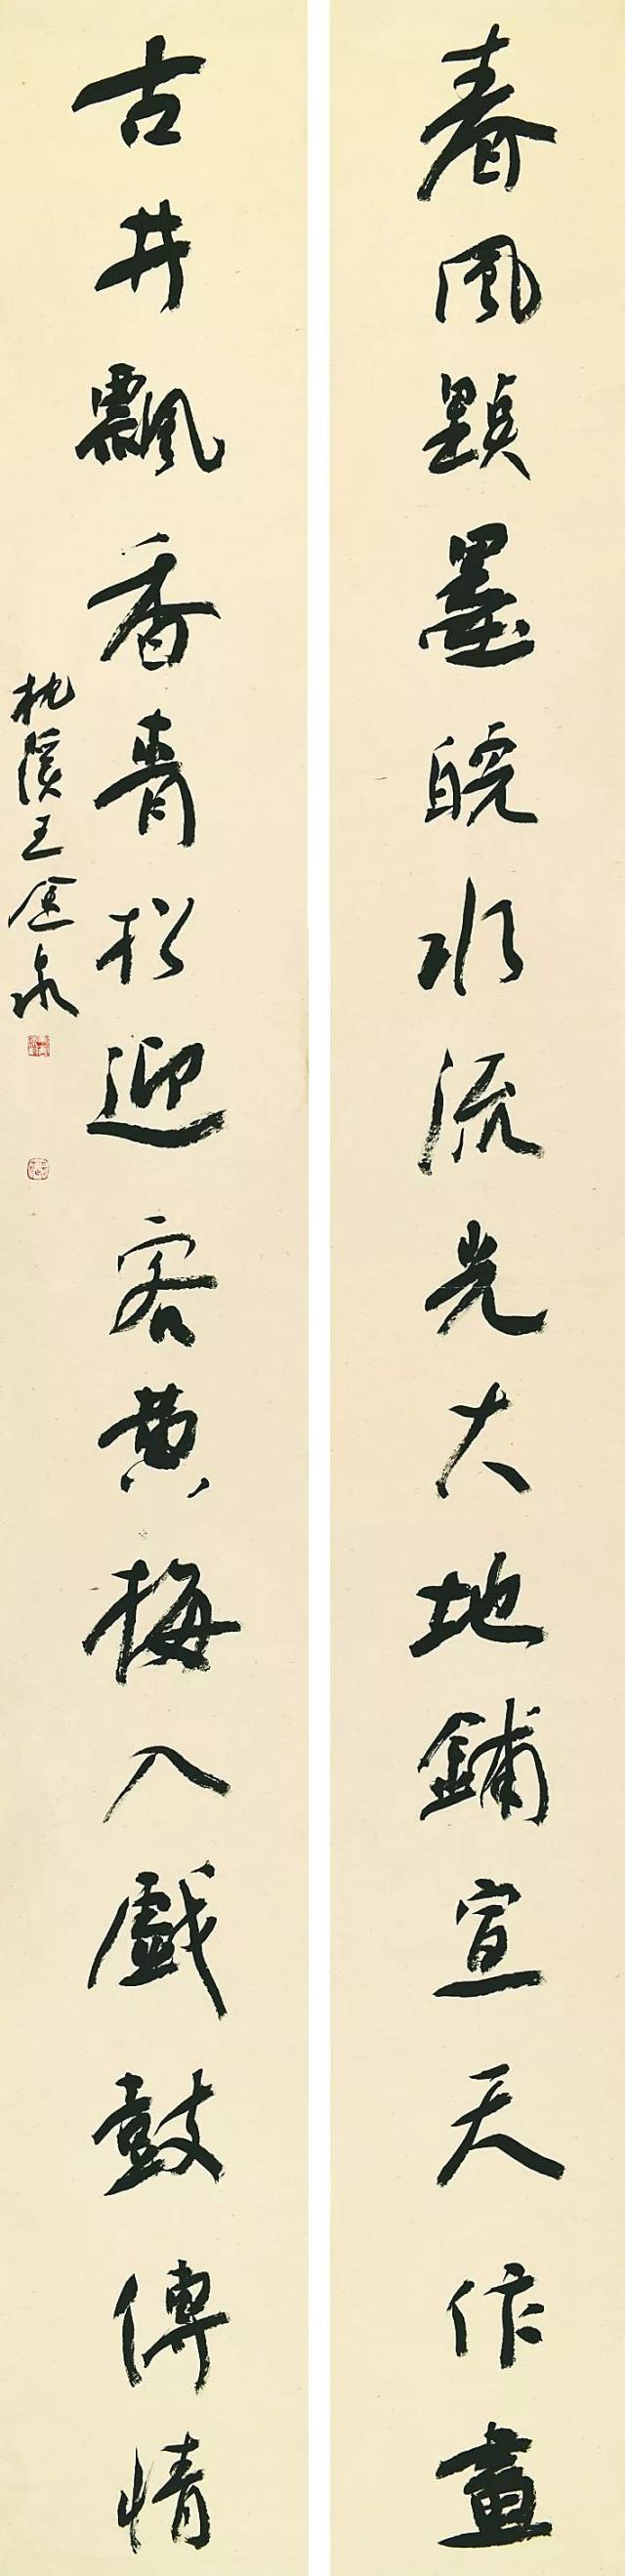 春風顥墨皖水流光大地鋪宣天作畫
古井飄香青松迎客黄梅入戲鼓傳情
枕溪王金泉